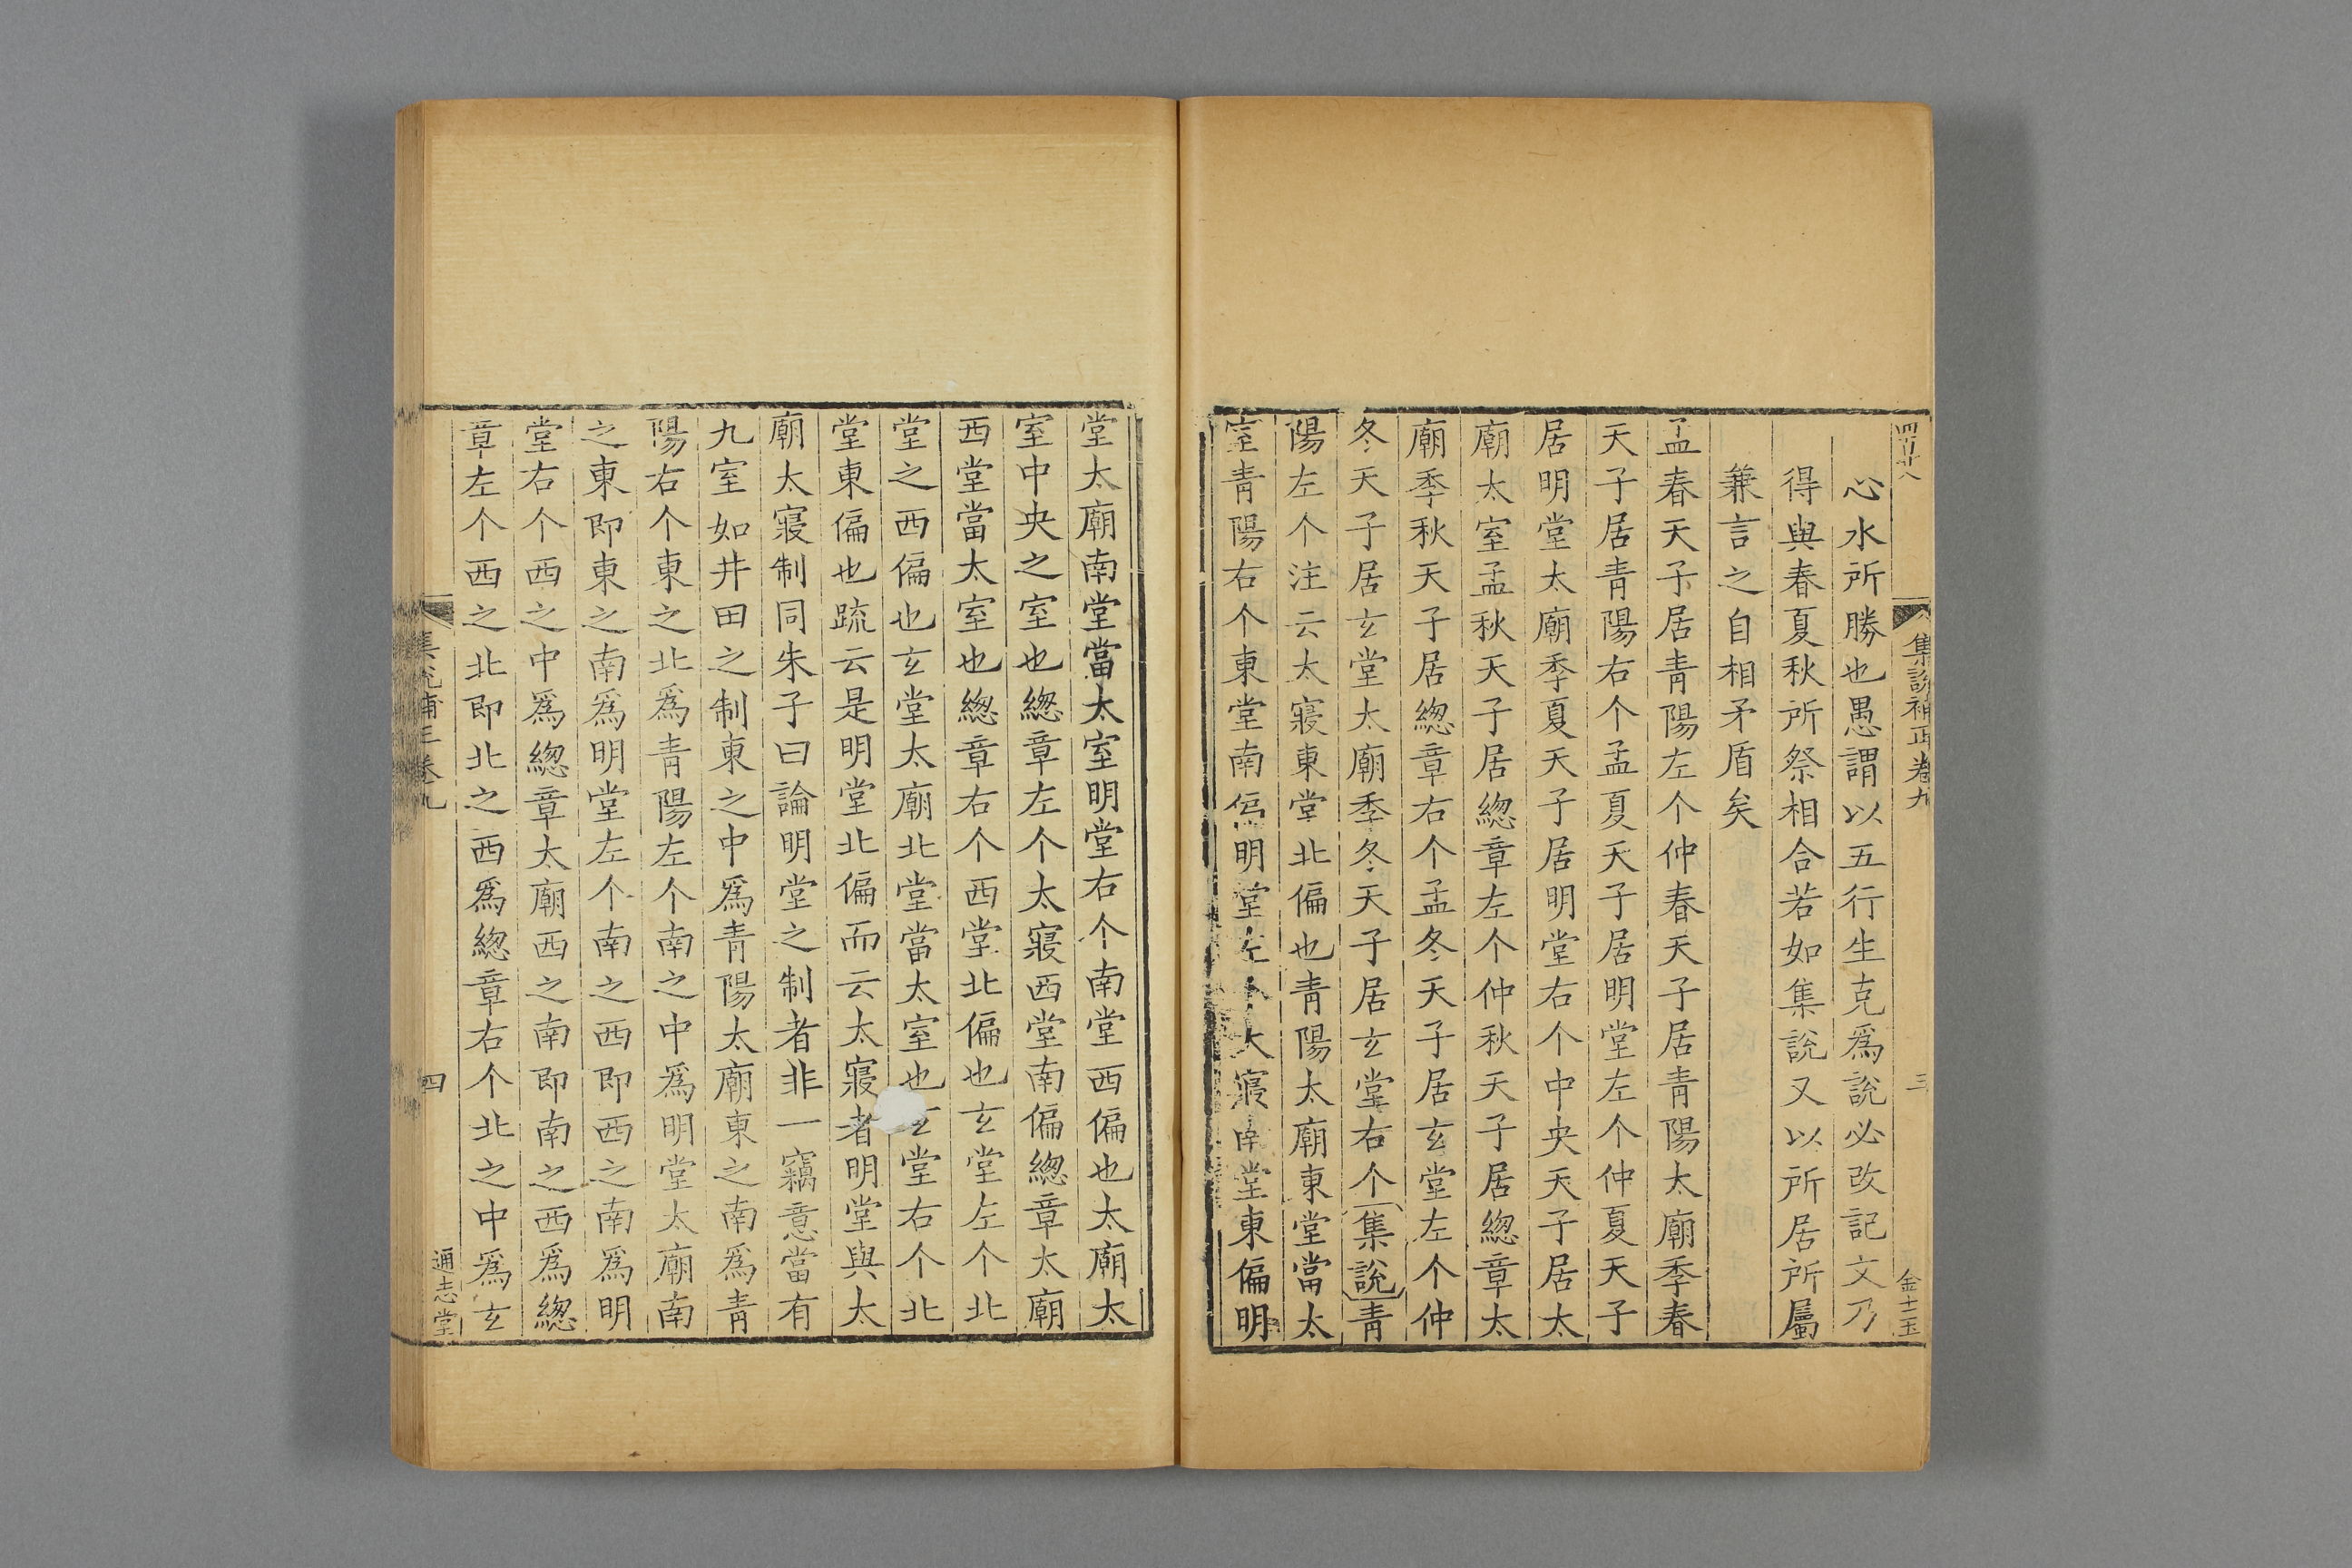 集說補正卷九
三
金士玉
心水所勝也愚謂以五行生克爲說必改記文乃
得與春夏秋所祭相合若如集說又以所居所屬
兼言之自相矛盾矣
孟春天子居青陽左个仲春天子居青陽太廟季春
天子居青陽右个孟夏天子居明堂左个仲夏天子
居明堂太廟季夏天子居明堂右个中央天子居太
廟太室孟秋天子居緫章左个仲秋天子居緫章太
廟季秋天子居緫章右个孟冬天子居玄堂左个仲
冬天子居玄堂太廟季冬天子居玄堂右个集說青
陽左个注云太寢東堂北偏也青陽太廟東堂當太
室青陽右个東堂南偏明堂左个太寢南堂東偏明
堂太廟南堂當太室明堂右个南堂西偏也太廟太
室中央之室也緫章左个太寢西堂南偏緫章太廟
西堂當太室也緫章右个西堂北偏也玄堂左个北
堂之西偏也玄堂太廟北堂當太室也玄堂右个北
堂東偏也疏云是明堂北偏而云太寢者明堂與太
廟太寢制同朱子曰論明堂之制者非一竊意當有
九室如井田之制東之中爲青陽太廟東之南爲青
陽右个東之北爲青陽左个南之中爲明堂太廟南
之東即東之南爲明堂左个南之西即西之南爲明
堂右个西之中爲緫章太廟西之南即南之西爲緫
章左个西之北即北之西爲緫章右个北之中爲玄
集說補正卷九
四
通志堂